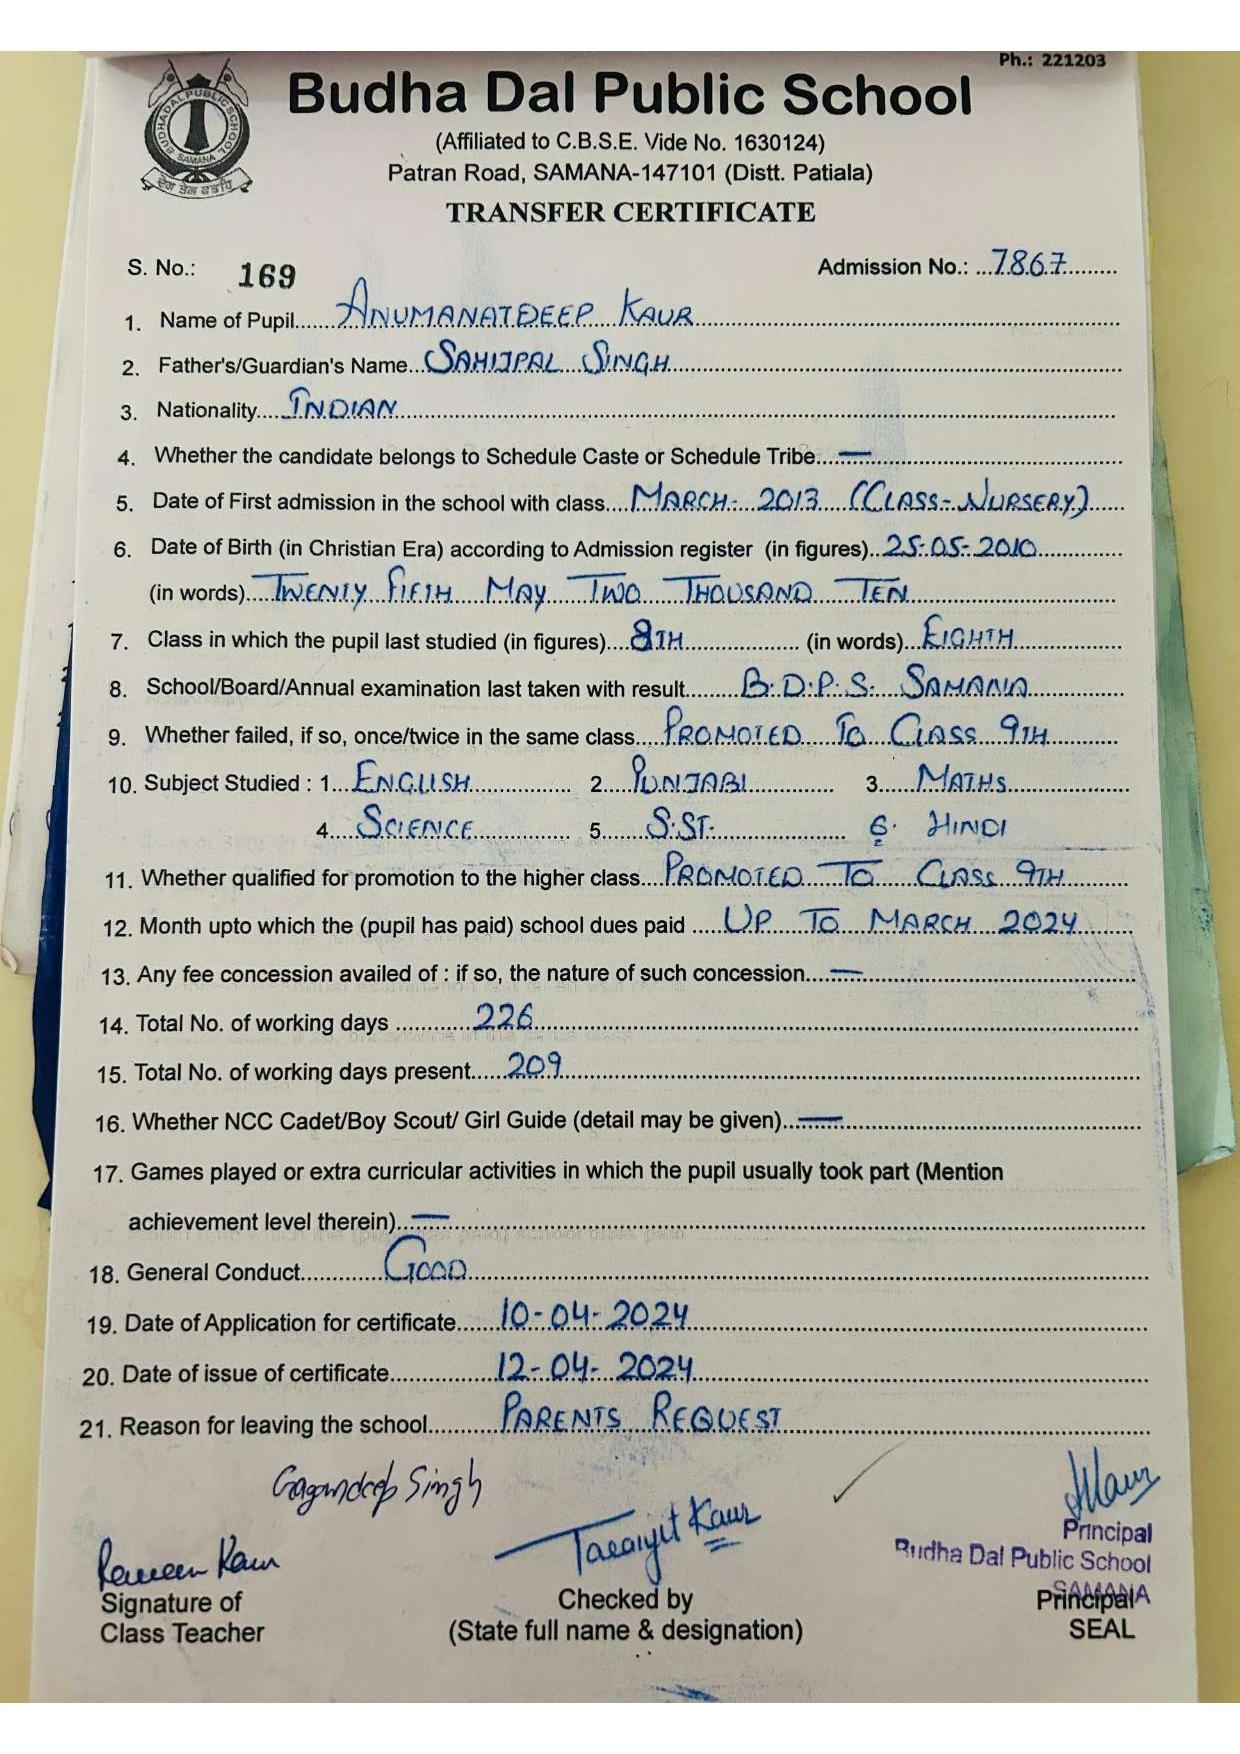 Ph.: 221203
BUDHA DAL PUBLIC SCHOOL
SAMANA
ਦੇਗ ਤੇਗ ਫਤਹਿ
Budha Dal Public School
(Affiliated to C.B.S.E. Vide No. 1630124)
Patran Road, SAMANA-147101 (Distt. Patiala)
TRANSFER CERTIFICATE
S. No.: 169 Admission No.: ...7867.........
1. Name of Pupil......ANUMANATDEEP KAUR......
2. Father's/Guardian's Name...SAHIJPAL SINGH......
3. Nationality.....INDIAN......
4. Whether the candidate belongs to Schedule Caste or Schedule Tribe...—......
5. Date of First admission in the school with class....MARCH- 2013 (CLASS-NURSERY)......
6. Date of Birth (in Christian Era) according to Admission register (in figures)..25-05-2010......
(in words)....TWENTY FIFTH MAY TWO THOUSAND TEN......
7. Class in which the pupil last studied (in figures)....8TH...... (in words)...EIGHTH......
8. School/Board/Annual examination last taken with result........B.D.P.S. SAMANA......
9. Whether failed, if so, once/twice in the same class....PROMOTED TO CLASS 9TH......
10. Subject Studied : 1...ENGLISH...... 2....PUNJABI...... 3....MATHS......
4....SCIENCE...... 5......S.ST....... 6. HINDI
11. Whether qualified for promotion to the higher class....PROMOTED TO CLASS 9TH......
12. Month upto which the (pupil has paid) school dues paid .....UP TO MARCH 2024......
13. Any fee concession availed of : if so, the nature of such concession....—......
14. Total No. of working days ............226......
15. Total No. of working days present......209......
16. Whether NCC Cadet/Boy Scout/ Girl Guide (detail may be given)..—......
17. Games played or extra curricular activities in which the pupil usually took part (Mention
achievement level therein)..—......
18. General Conduct............GOOD......
19. Date of Application for certificate......10-04-2024......
20. Date of issue of certificate..............12-04-2024......
21. Reason for leaving the school..........PARENTS REQUEST......
Gagandeep Singh
Kaur
Kaur
Principal
Budha Dal Public School
SAMANA
Signature of Checked by Principal
Class Teacher (State full name & designation) SEAL